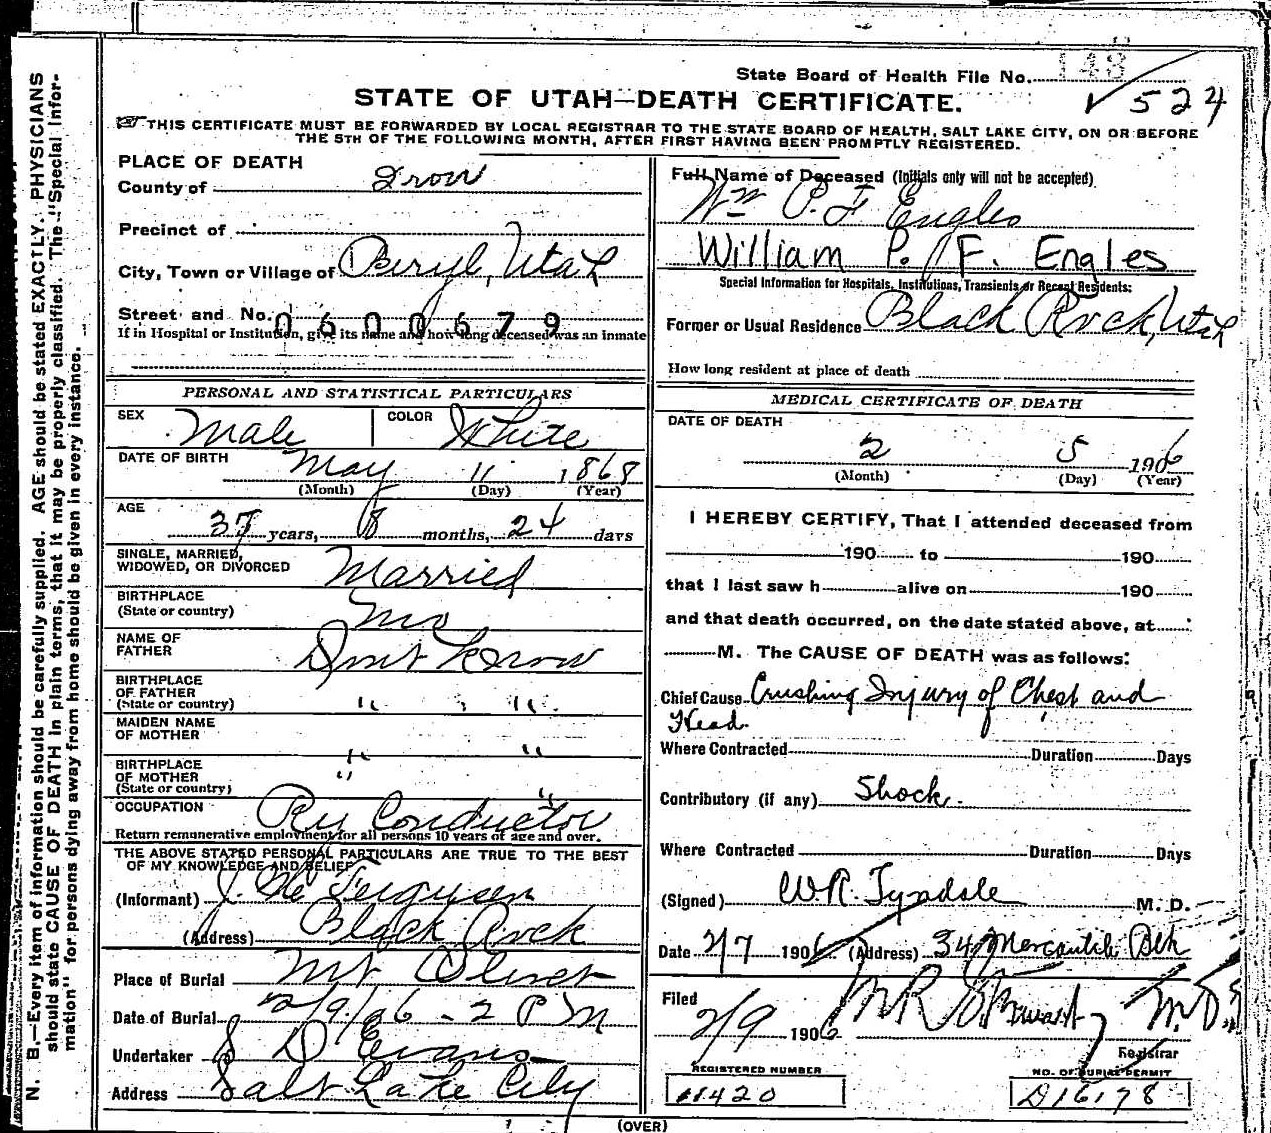 State Board of Health File No. 148
✓ 524
STATE OF UTAH—DEATH CERTIFICATE.
THIS CERTIFICATE MUST BE FORWARDED BY LOCAL REGISTRAR TO THE STATE BOARD OF HEALTH, SALT LAKE CITY, ON OR BEFORE
THE 5TH OF THE FOLLOWING MONTH, AFTER FIRST HAVING BEEN PROMPTLY REGISTERED.
N. B.—Every item of information should be carefully supplied. AGE should be stated EXACTLY. PHYSICIANS
should state CAUSE OF DEATH in plain terms, that it may be properly classified. The "Special Infor-
mation" for persons dying away from home should be given in every instance.
PLACE OF DEATH
County of Iron
Precinct of
City, Town or Village of Beryl, Utah
Street and No. 0600679
If in Hospital or Institution, give its name and how long deceased was an inmate
PERSONAL AND STATISTICAL PARTICULARS
SEX Male COLOR White
DATE OF BIRTH May 11 1868
(Month) (Day) (Year)
AGE
37 years, 8 months, 24 days
SINGLE, MARRIED,
WIDOWED, OR DIVORCED Married
BIRTHPLACE
(State or country) Mo
NAME OF
FATHER Dont Know
BIRTHPLACE
OF FATHER
(State or country) " "
MAIDEN NAME
OF MOTHER " "
BIRTHPLACE
OF MOTHER
(State or country) " "
OCCUPATION Ry Conductor
Return remunerative employment for all persons 10 years of age and over.
THE ABOVE STATED PERSONAL PARTICULARS ARE TRUE TO THE BEST
OF MY KNOWLEDGE AND BELIEF
(Informant) J. Ferguson
(Address) Black Rock
Place of Burial Mt Olivet
Date of Burial 2/9/06 - 2 PM
Undertaker S D Evans
Address Salt Lake City
Full Name of Deceased (Initials only will not be accepted)
Wm P. F Engles
William P. F. Engles
Special Information for Hospitals, Institutions, Transients or Recent Residents:
Former or Usual Residence Black Rock, Utah
How long resident at place of death
MEDICAL CERTIFICATE OF DEATH
DATE OF DEATH
2 5 1906
(Month) (Day) (Year)
I HEREBY CERTIFY, That I attended deceased from
190 to 190
that I last saw h alive on 190
and that death occurred, on the date stated above, at
M. The CAUSE OF DEATH was as follows:
Chief Cause Crushing Injury of Chest and
Head.
Where Contracted Duration Days
Contributory (if any) Shock.
Where Contracted Duration Days
(Signed) W.R. Tyndale M. D.
Date 2/7 1906 (Address) 34 Mercantile Blk
Filed
2/9 1906 M R Stewart M.D.
Registrar
REGISTERED NUMBER
11420
NO. OF BURIAL PERMIT
D16178
(OVER)